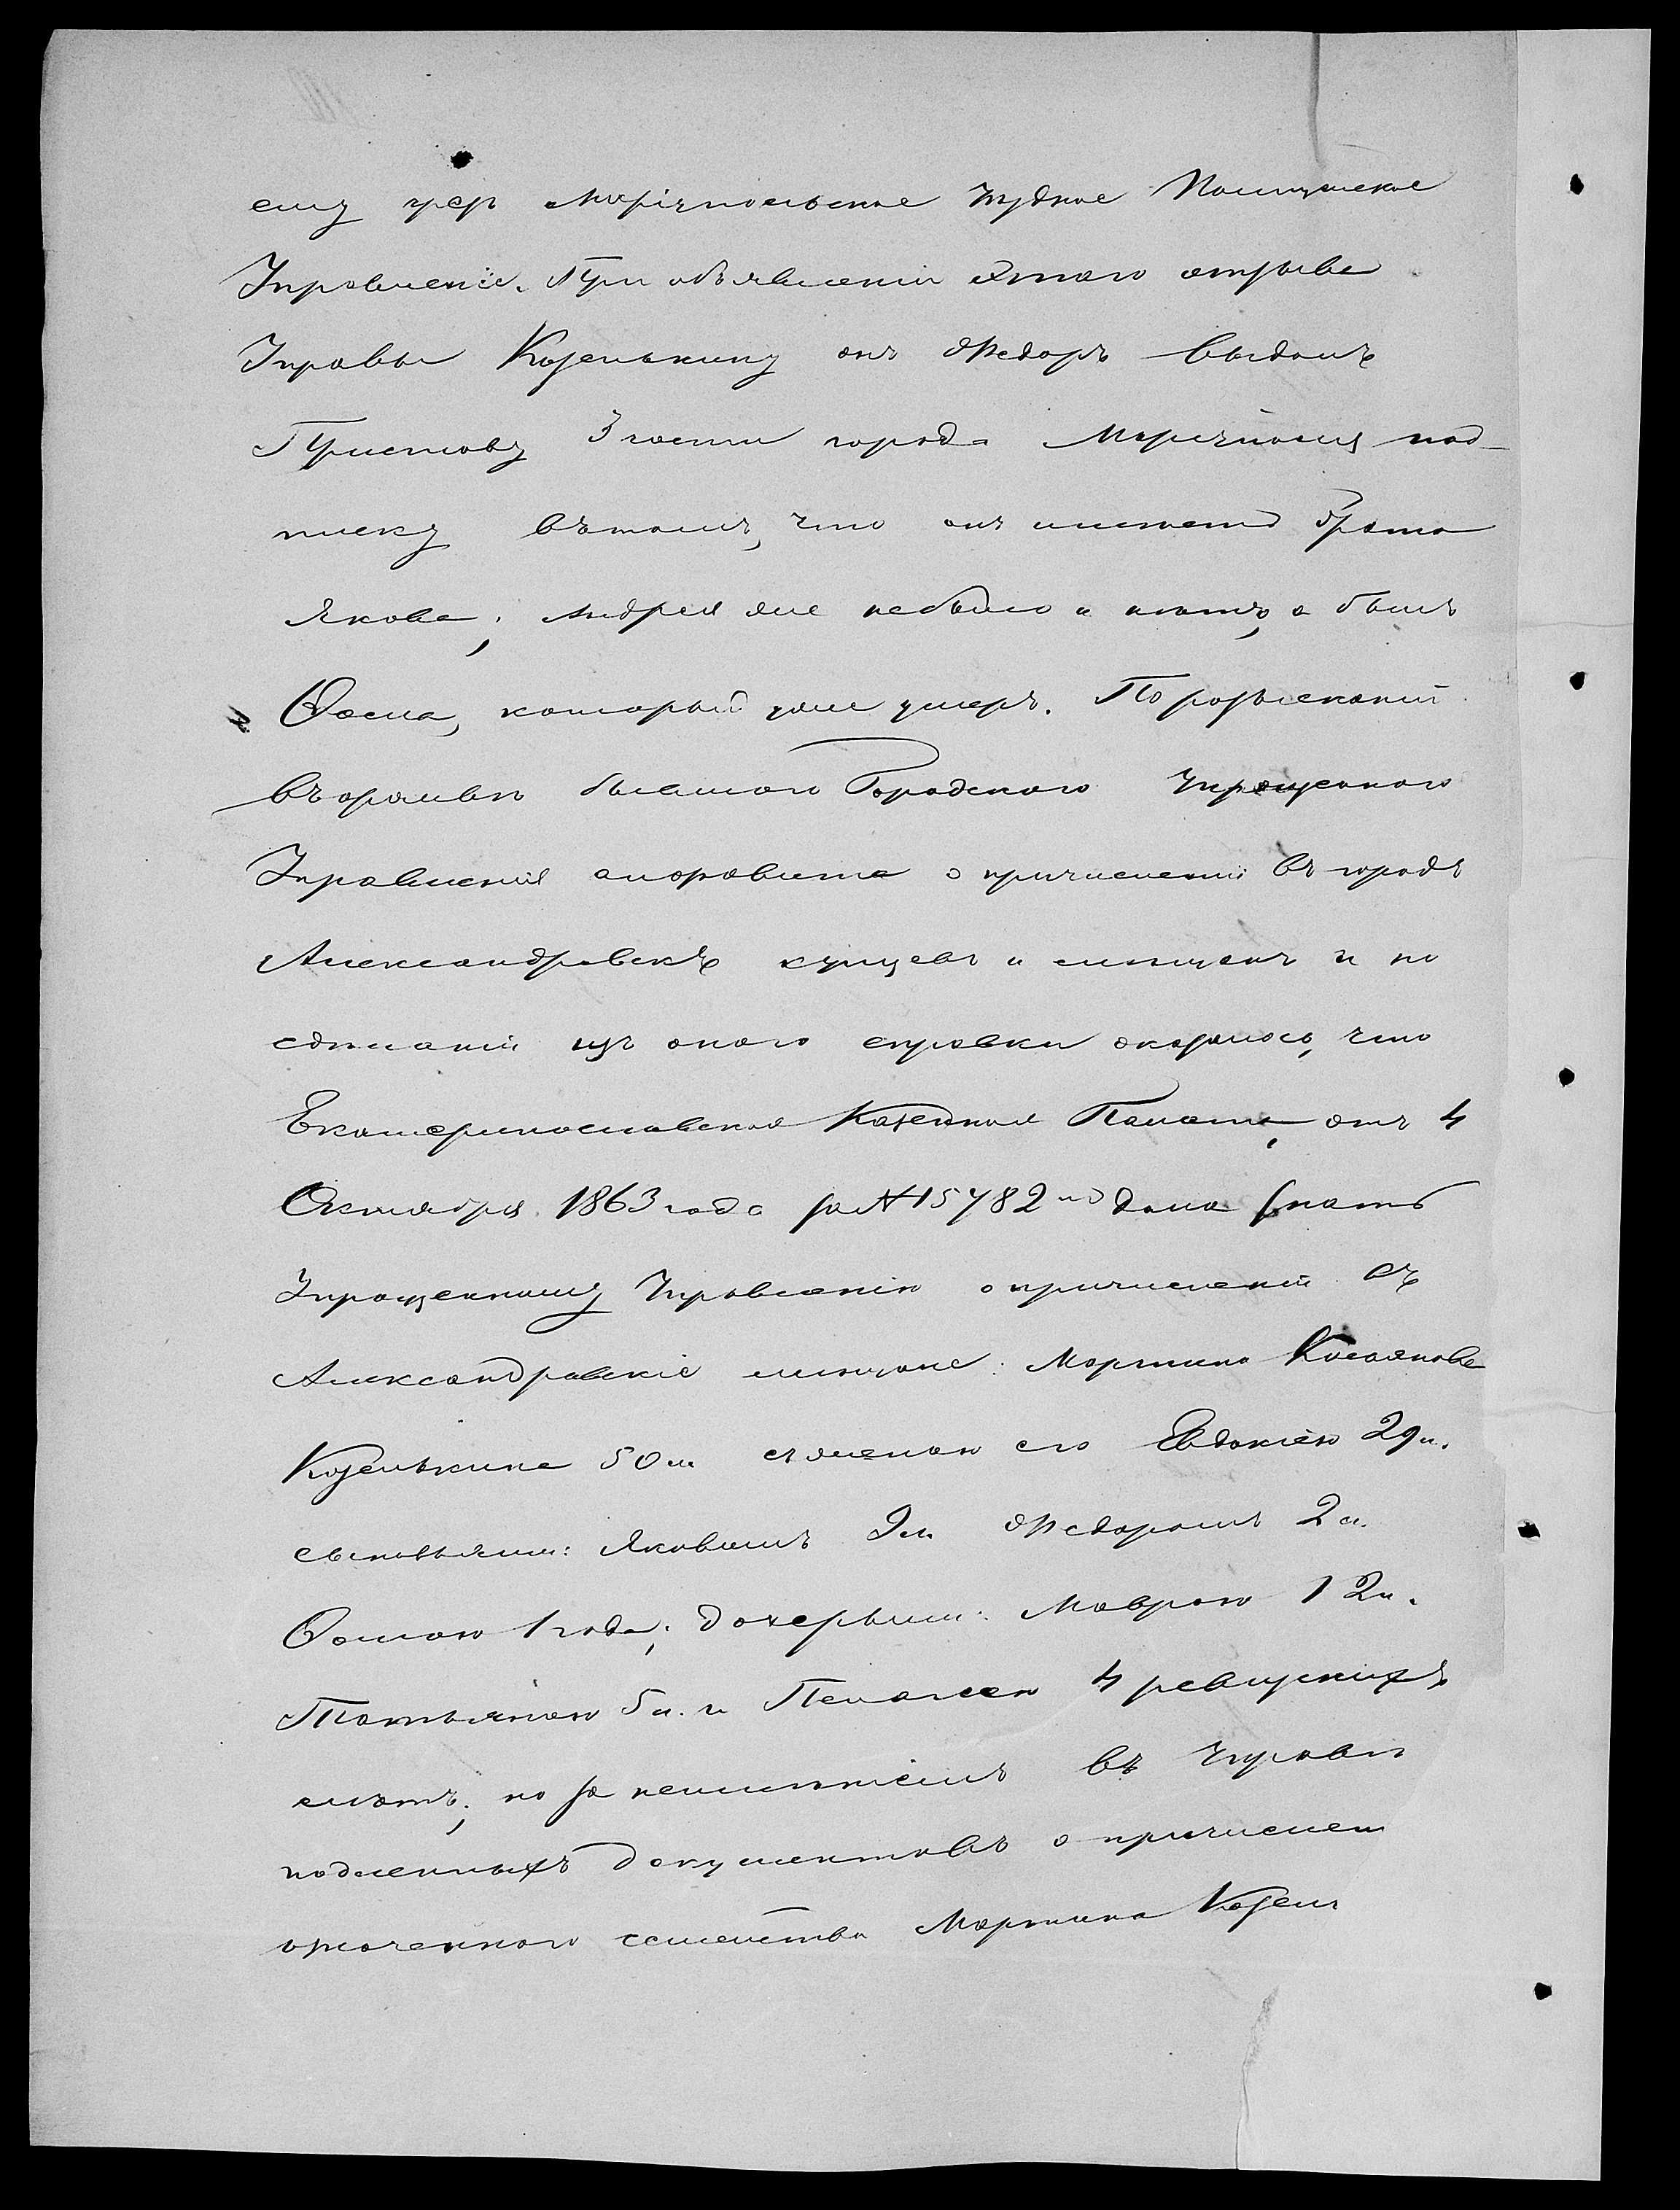 ему чрезъ Маріупольское Уѣздное Полицейское
Управленіе. При объявленіи этого отзыва
Управы Козелькину онъ Ѳедоръ выдалъ
Приставу 3 части города Маріуполя под-
писку въ томъ, что онъ имѣетъ брата
Якова; Андрея же небыло и нѣтъ, а былъ
Ѳома, который уже умеръ. По розысканіи
въ архивѣ бывшаго Городскаго Упрощеннаго
Управленія алфавита о причисленіи въ городъ
Александровскъ купцевъ и мѣщанъ и по
сдѣланіи изъ онаго справки оказалось, что
Екатеринославская Казенная Палата, отъ 4
Октября 1863 года за № 15782мъ дала знать
Упрощенному Управленію о причисленіи въ
Александровскіе мѣщане: Мартина Касьянова
Козелькина 50 л. съ женою его Евдокіею 29 л.
сыновьями: Яковомъ 9 л. Ѳедоромъ 2 л.
Ѳомою 1 года; дочерьми: Маврою 12 л.
Татьяною 5 л. и Пелагеею 4 ревизскихъ
лѣтъ; но за неимѣніемъ въ Управѣ
подленныхъ документовъ о причислен
означеннаго семейства Мартина Козель